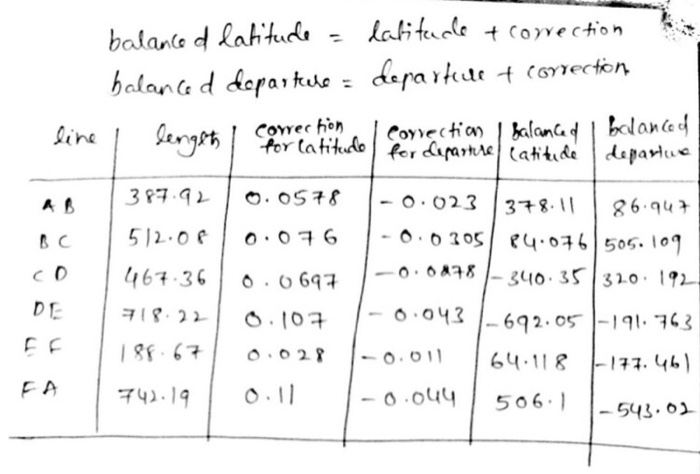 balanced latitude = latitude + correction
balanced departure = departure + correction
line length correction for latitude correction for departure Balanced latitude Balanced departure
AB 387.92 0.0578 -0.023 378.11 86.947
BC 512.08 0.076 -0.0305 84.076 505.109
CD 467.36 0.0697 -340.35 320.192
DE 718.22 0.107 -0.043 -692.05 -191.763
EF 188.67 0.028 -0.011 64.118 -177.461
FA 742.19 0.11 -0.044 506.1 -543.02